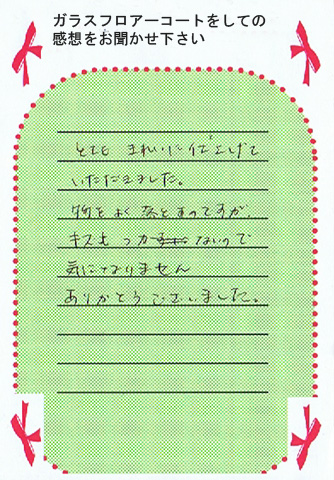 ガラスフロアーコートをしての
感想をお聞かせ下さい
とても きれいに仕上げて
いただきました。
物をよく落とすのですが、
キズも つかないので
気になりません
ありがとうございました。